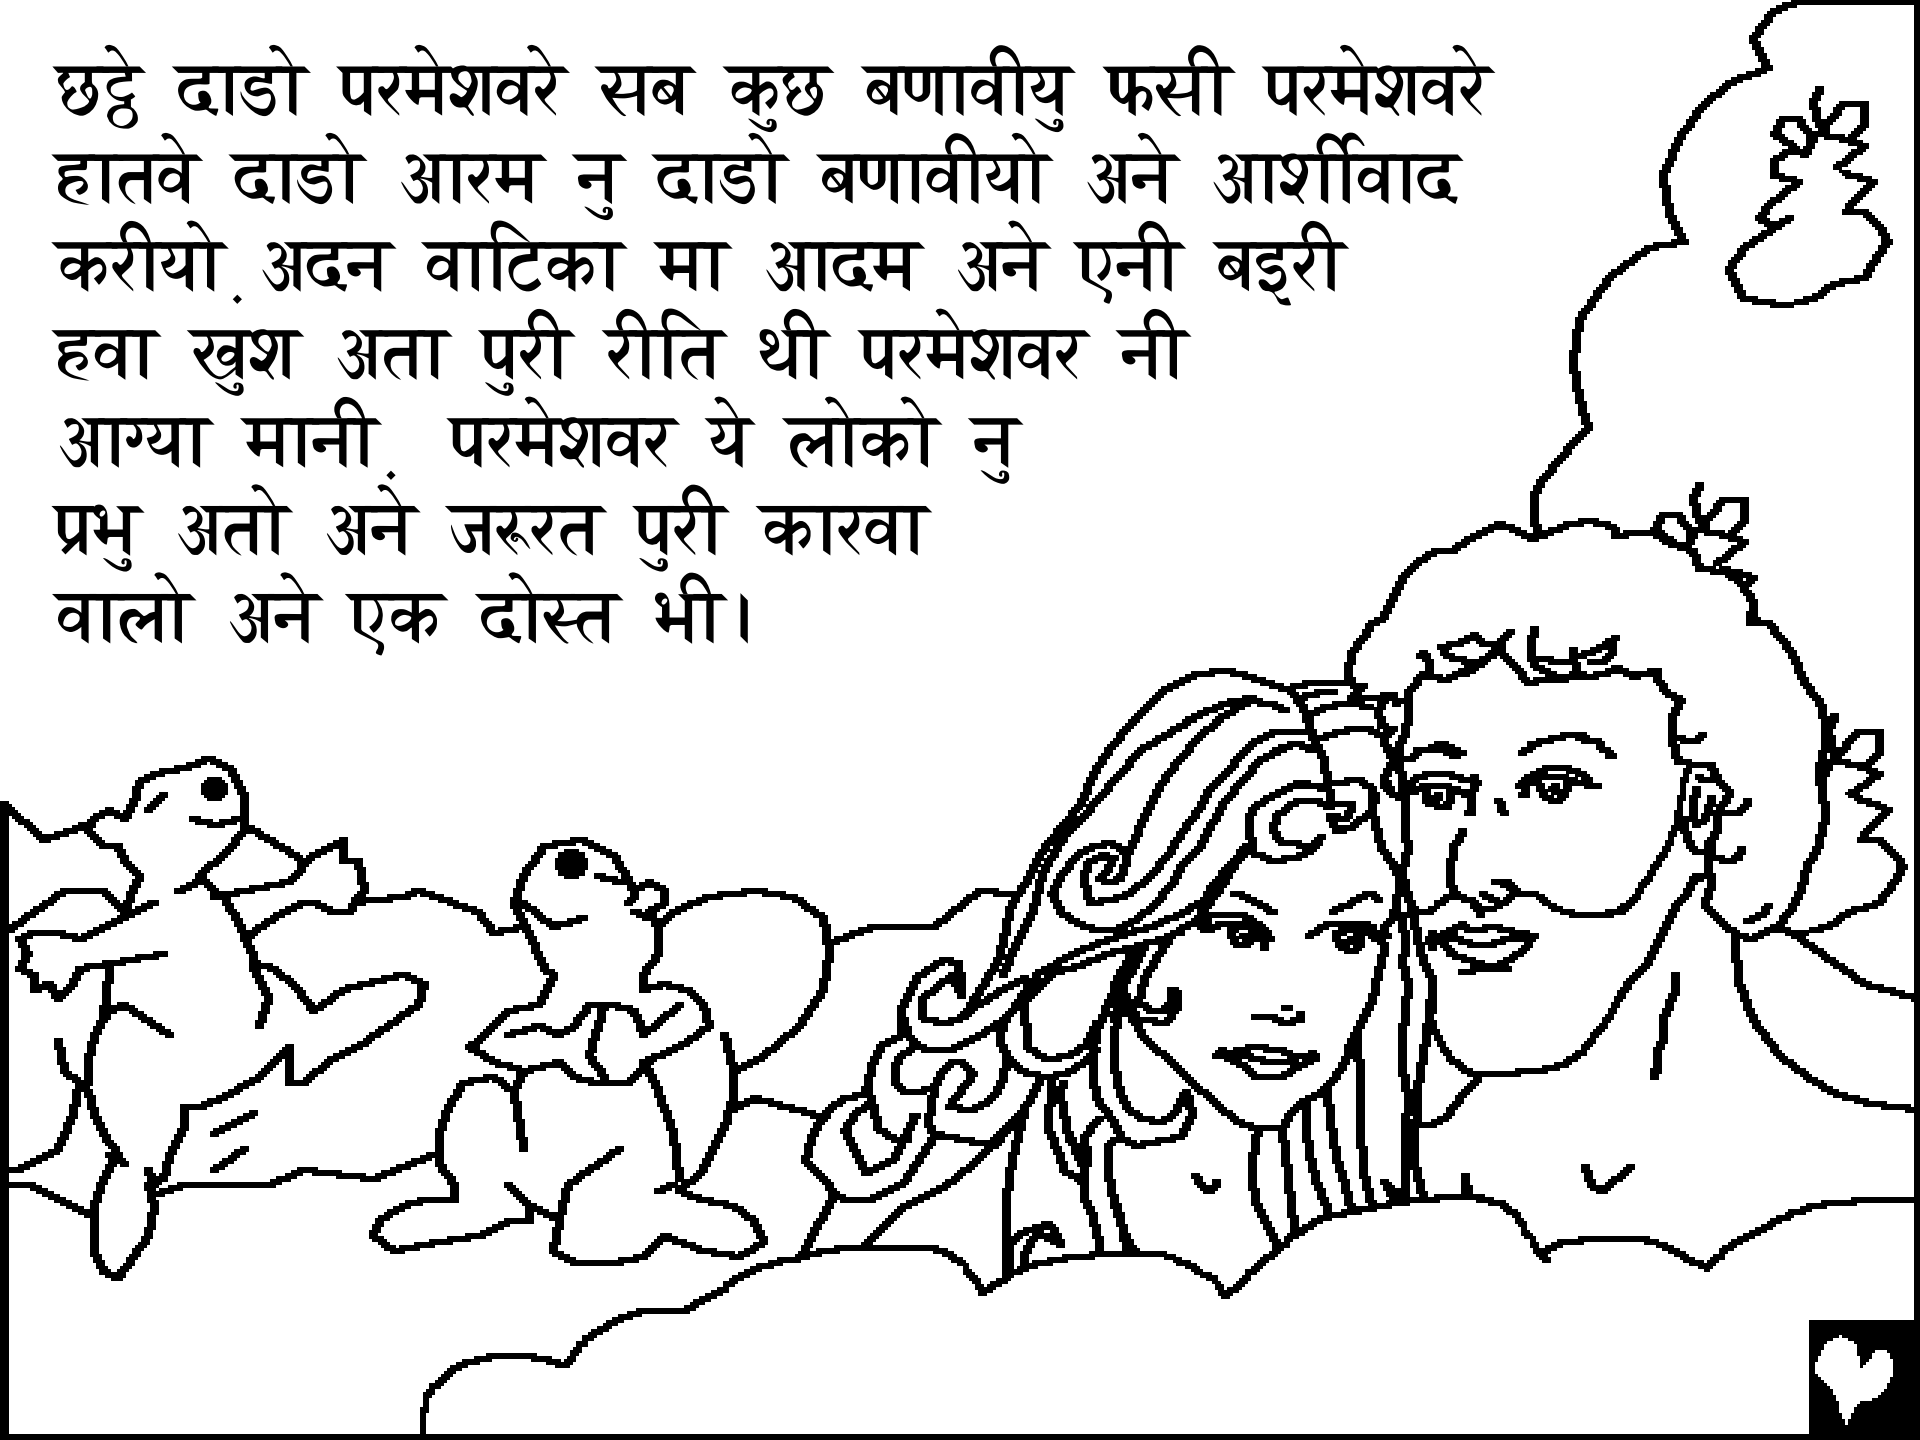 छट्ठे दाडो परमेशवरे सब कुछ बणावीयु फसी परमेशवरे
हातवे दाडो आरम नु दाडो बणावीयो अने आर्शीवाद
करीयो़ अदन वाटिका मा आदम अने एनी बइरी
हवा खुश अता पुरी रीति थी परमेशवर नी
आग्या मानी़ परमेशवर ये लोको नु
प्रभु अतो अने जरूरत पुरी कारवा
वालो अने एक दोस्त भी।